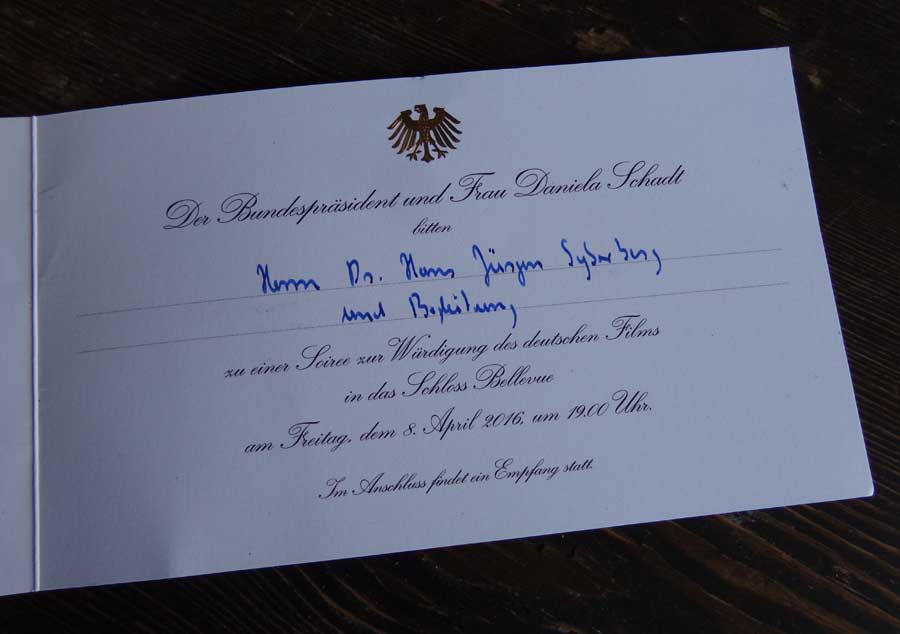 Der Bundespräsident und Frau Daniela Schadt
bitten
Herrn Dr. Hans Jürgen Syberberg
und Begleitung
zu einer Soiree zur Würdigung des deutschen Films
in das Schloss Bellevue
am Freitag, dem 8. April 2016, um 19.00 Uhr.
Im Anschluss findet ein Empfang statt.